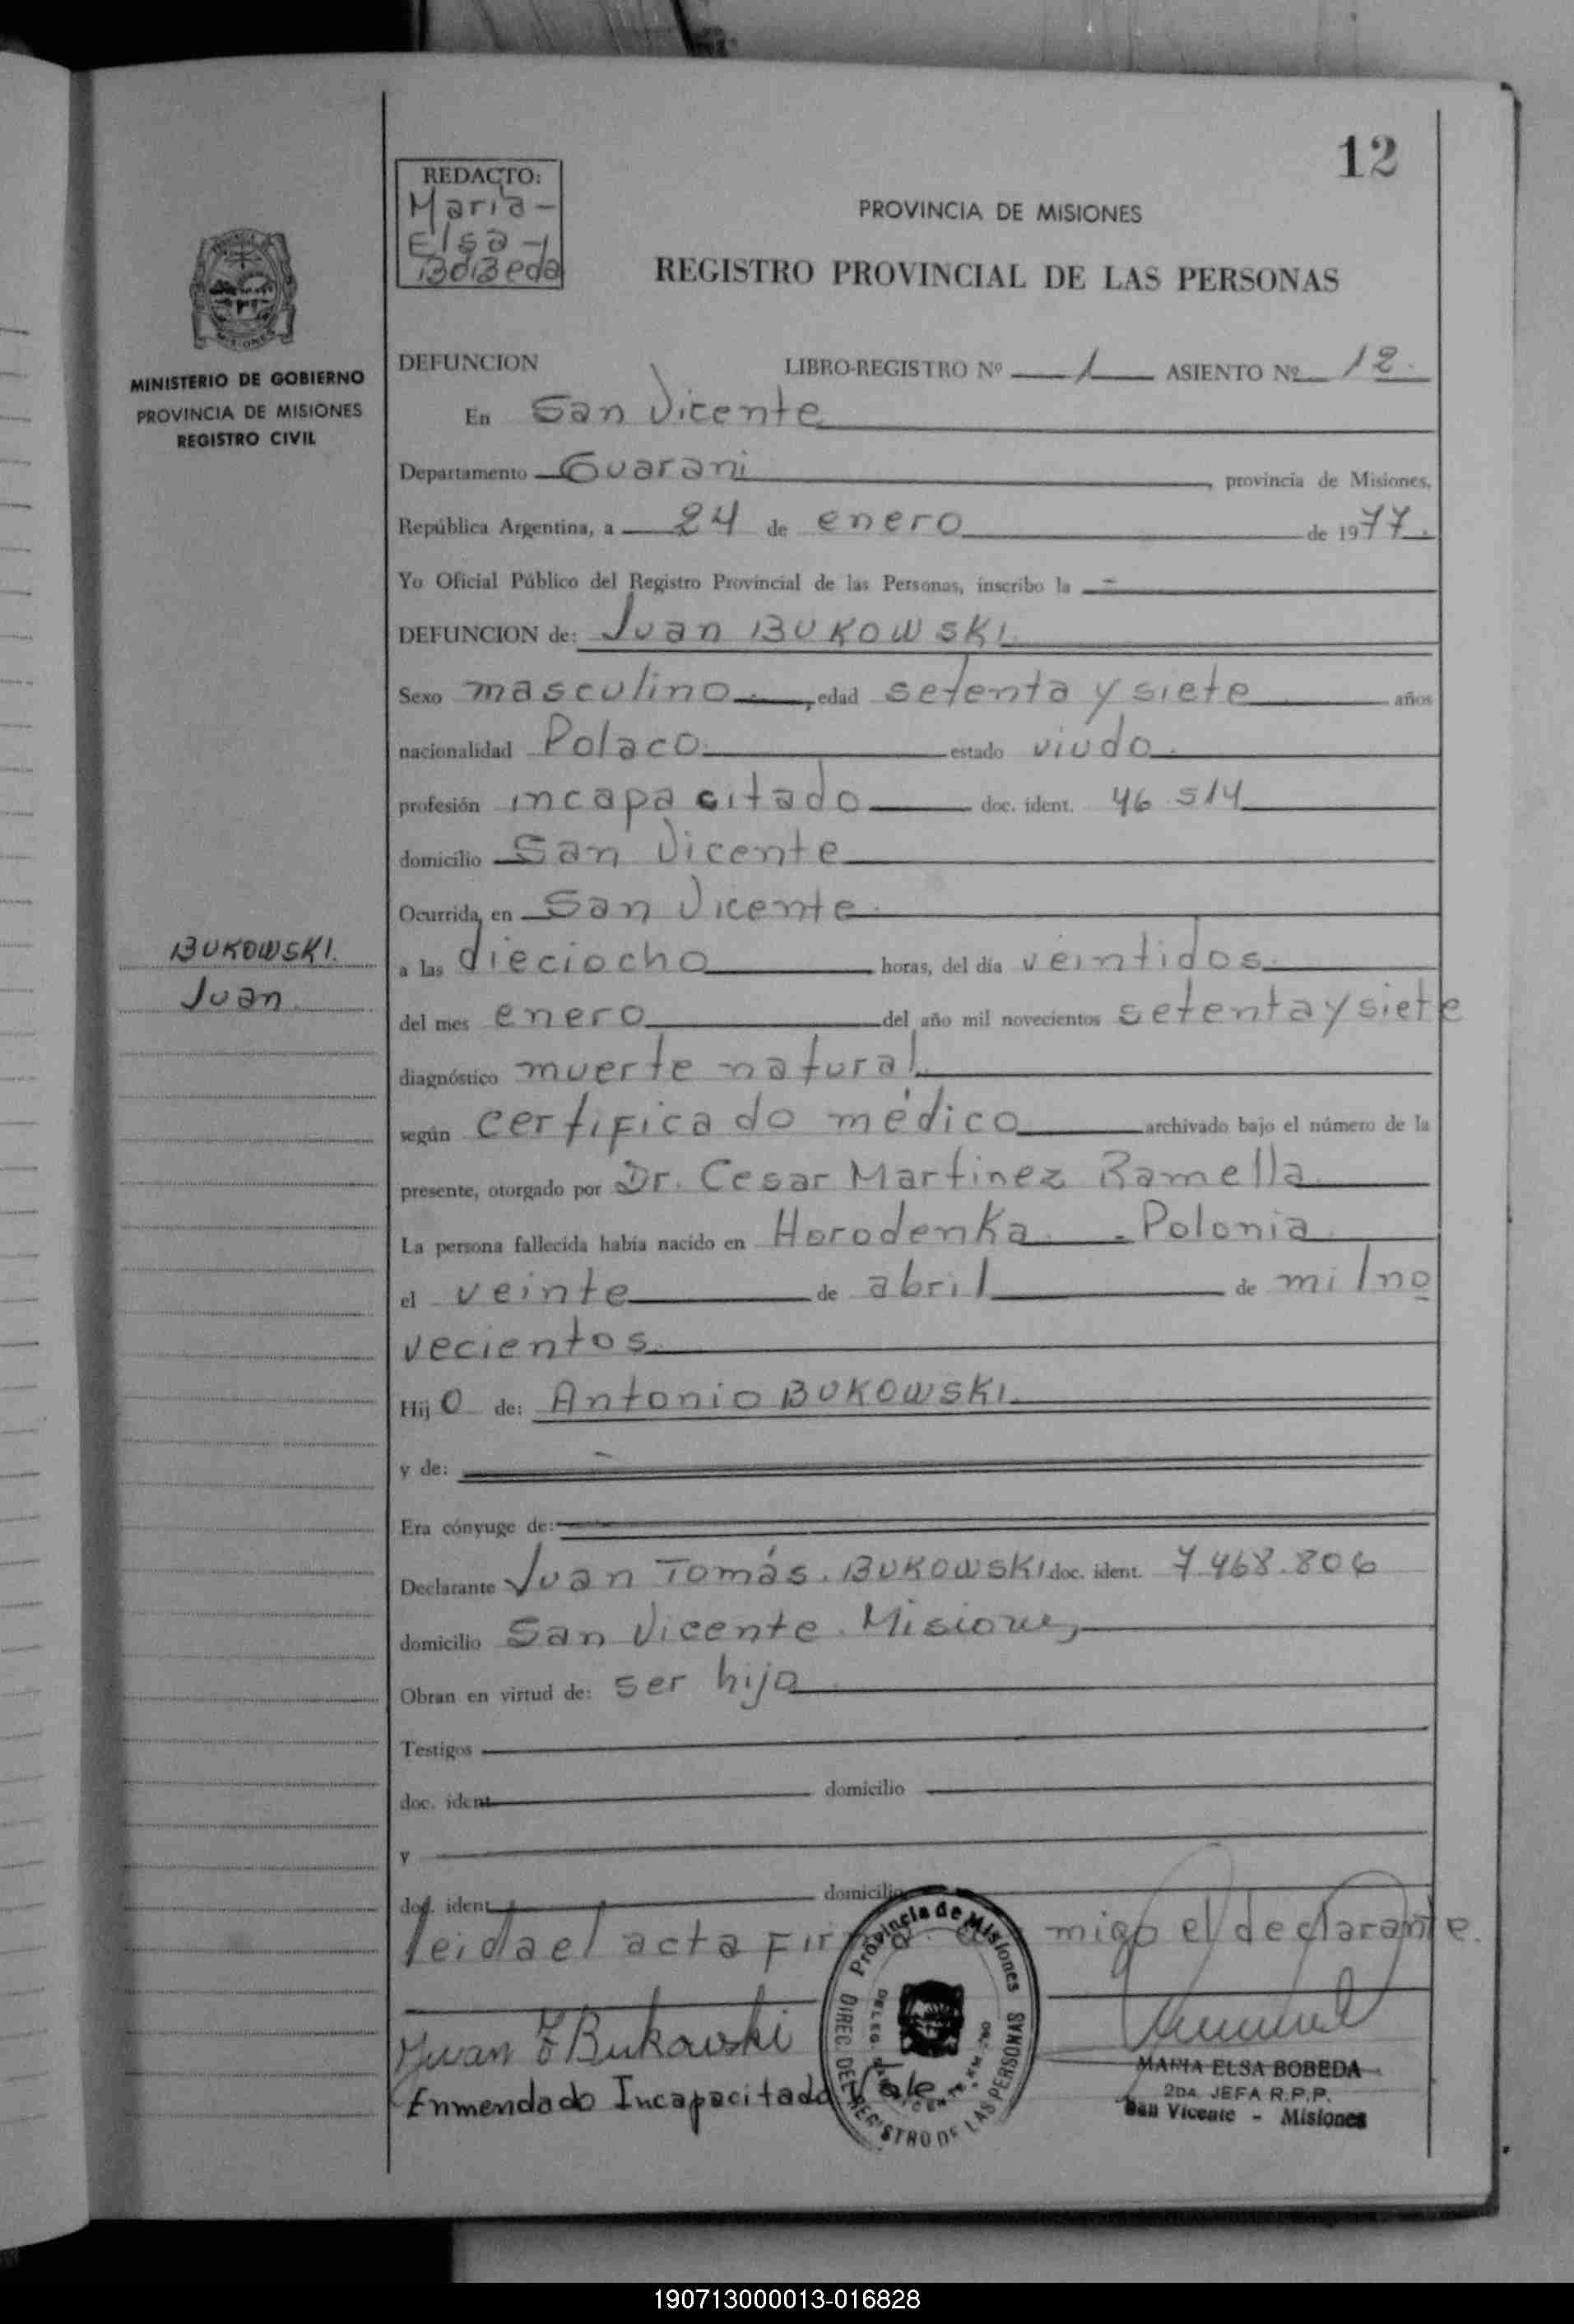 12
REDACTO:
Maria-
Elsa-
BoBeda
PROVINCIA DE MISIONES
REGISTRO PROVINCIAL DE LAS PERSONAS
MINISTERIO DE GOBIERNO
PROVINCIA DE MISIONES
REGISTRO CIVIL
DEFUNCION LIBRO-REGISTRO Nº 1 ASIENTO Nº 12.
En San Vicente
Departamento Guarani, provincia de Misiones,
República Argentina, a 24 de enero de 1977.
Yo Oficial Público del Registro Provincial de las Personas, inscribo la
DEFUNCION de: Juan BUKOWSKI.
Sexo masculino, edad setenta y siete años
nacionalidad Polaco. estado viudo.
profesión incapacitado doc. ident. 46 514
domicilio San Vicente
Ocurrida, en San Vicente.
BUKOWSKI.
Juan
a las dieciocho horas, del día veintidos.
del mes enero del año mil novecientos setenta y siete
diagnóstico muerte natural.
según certificado médico archivado bajo el número de la
presente, otorgado por Dr. Cesar Martinez Ramella
La persona fallecida había nacido en Horodenka. - Polonia
el veinte de abril de mil no
vecientos.
Hijo de: Antonio BUKOWSKI.
y de:
Era cónyuge de:
Declarante Juan Tomás. BUKOWSKI doc. ident. 7.468.806
domicilio San Vicente. Misiones,
Obran en virtud de: ser hijo
Testigos
doc. ident. domicilio
y
doc. ident. domicilio
leida el acta migo el declarante.
Juan T Bukowski
Enmendado Incapacitado Vale
Provincia de Misiones
DIREC. DEL REGISTRO DE LAS PERSONAS
MARIA ELSA BOBEDA
2DA JEFA R.P.P.
San Vicente - Misiones
190713000013-016828